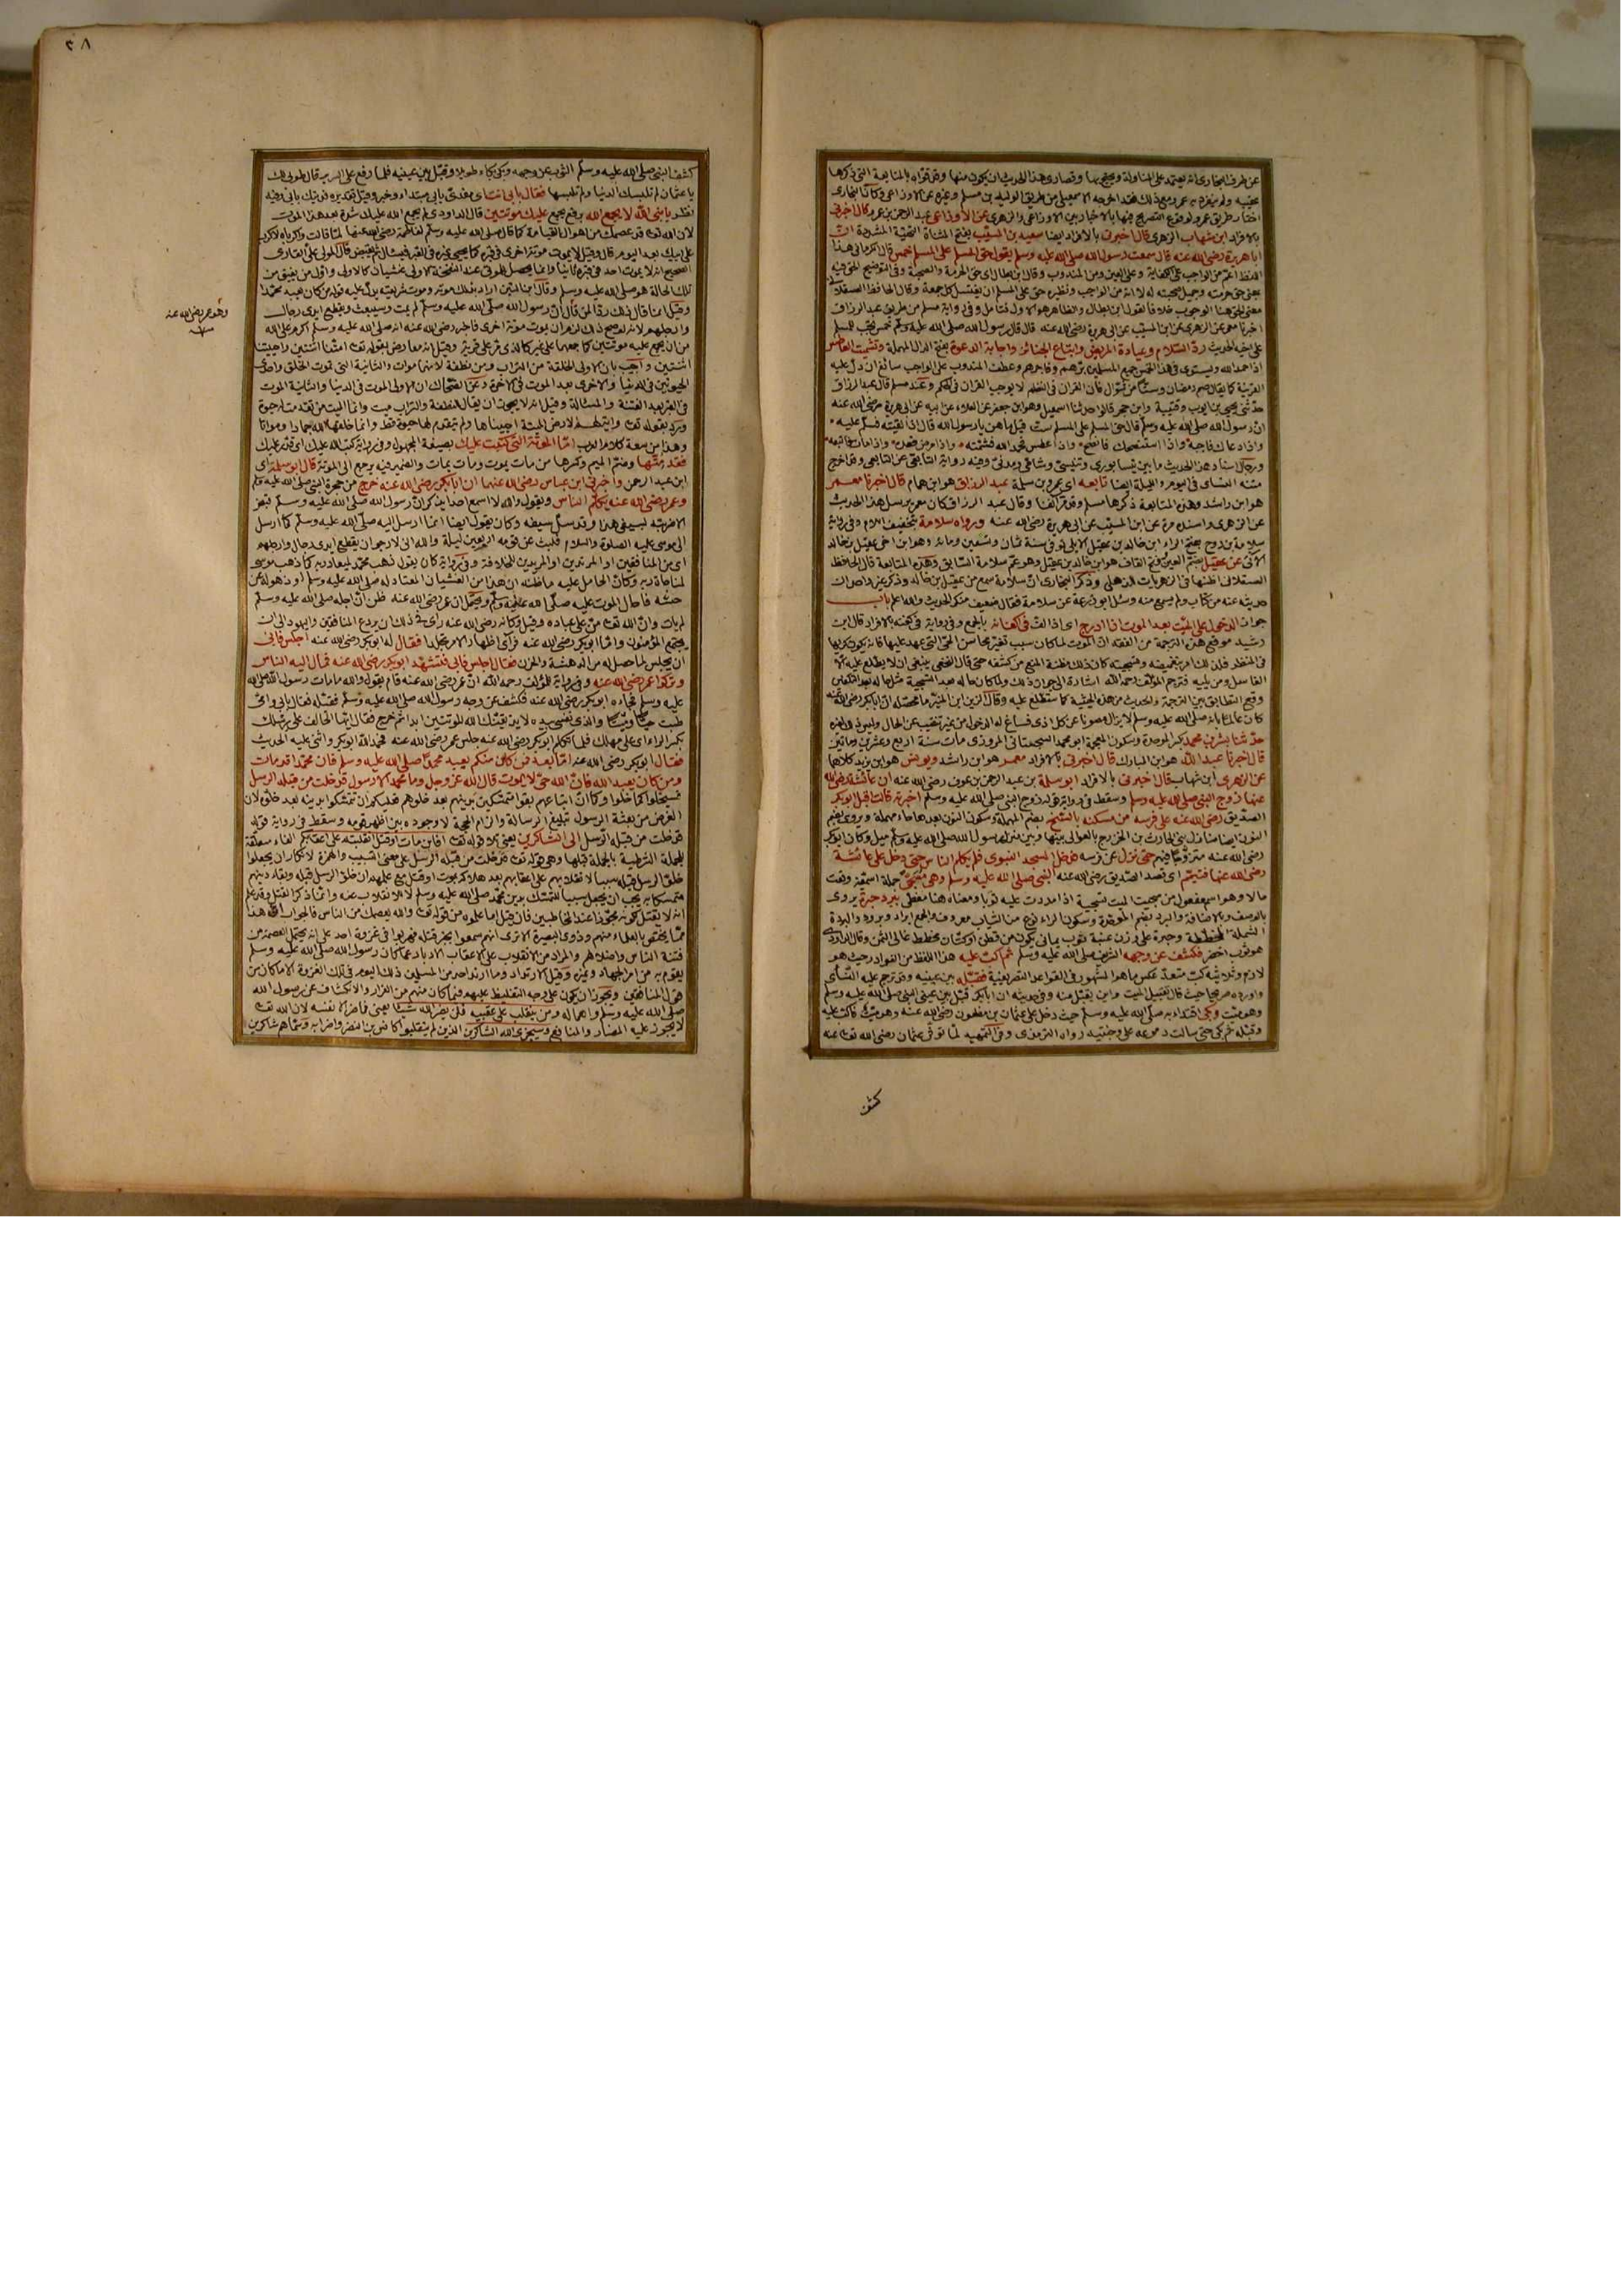 عن طرف البخارى انه يعتمد على المناولة ويحتج بها وقصارى هذا الحديث ان يكون منها وقد قواه بالمتابعة التى ذكرها
عقيبه ولم ينفرد به عمرو ومع ذلك فقد اخرجه الاسمعيلى من طريق الوليد بن مسلم وغيره عن الاوزاعى وكأن البخارى
اختار طريق عمرو لوقوع التصريح فيها بالاخبار بين الاوزاعى والزهرى عن الاوزاعى عبد الرحمن بن عمرو قال اخبرنى
بالافراد ابن شهاب الزهرى قال اخبرنى بالافراد ايضا سعيد بن المسيب بفتح المثناة التحتية المشددة ان
ابا هريرة رضى الله عنه قال سمعت رسول الله صلى الله عليه وسلم يقول حق المسلم على المسلم خمس قال الكرمانى هذا
اللفظ اعم من الواجب على الكفاية وعلى العين ومن المندوب وقال ابن بطال اى حق الحرمة والصحبة وفى التوضيح الحق فيه
بمعنى حق حرمته وجميل صحبته له لا انه من الواجب ونظيره حق على المسلم ان يغتسل كل جمعة وقال الحافظ العسقلانى
معنى الحق هنا الوجوب خلافا لقول ابن بطال والظاهر هو الاول فتأمل وفى رواية مسلم من طريق عبد الرزاق
اخبرنا معمر عن الزهرى عن ابن المسيب عن ابى هريرة رضى الله عنه قال قال رسول الله صلى الله عليه وسلم خمس تجب للمسلم
على اخيه الحديث رد السلام وعيادة المريض واتباع الجنائز واجابة الدعوة بفتح الدال المهملة وتشميت العاطس
اذا حمد الله ويستوى فى هذا الخمس جميع المسلمين برهم وفاجرهم وعطف المندوب على الواجب سائغ ان دل عليه
القرينة كما يقال صم رمضان وستا من شوال فان القران فى النظم لا يوجب القران فى الحكم وعند مسلم قال عبد الرزاق
حدثنى يحيى بن ايوب وقتيبة وابن حجر قالوا حدثنا اسمعيل وهو ابن جعفر عن العلاء عن ابيه عن ابى هريرة رضى الله عنه
ان رسول الله صلى الله عليه وسلم قال حق المسلم على المسلم ست قيل ما هن يا رسول الله قال اذا لقيته فسلم عليه
واذا دعاك فاجبه واذا استنصحك فانصح له واذا عطس فحمد الله فشمته واذا مرض فعده واذا مات فاتبعه
ورجال اسناد هذا الحديث ما بين نيسابورى وتنيسى وشامى ومدنى وفيه رواية التابعى عن التابعى وقد اخرج
متنه النسائى فى اليوم والليلة ايضا تابعه اى عمرو بن سلمة عبد الرزاق هو ابن همام قال اخبرنا معمر
هو ابن راشد وهذه المتابعة ذكرها مسلم وقد مر آنفا وقال عبد الرزاق كان معمر يرسل هذا الحديث
عن الزهرى واسنده مرة عن ابن المسيب عن ابى هريرة رضى الله عنه ورواه سلامة بتخفيف اللام وفى رواية
سلامة بن روح بفتح الراء ابن خالد بن عقيل الايلى توفى سنة ثمان وتسعين ومائة وهو ابن اخى عقيل بن خالد
الآتى عن عقيل بضم العين وفتح القاف هو ابن خالد بن عقيل وهو عم سلامة السابق وهذه المتابعة قال الحافظ
العسقلانى اظنها فى الزهريات للذهلى وذكر البخارى ان سلامة سمع من عقيل بن خالد وذكر غير واحد ان
حديثه عنه من كتاب ولم يسمع منه وسئل ابو زرعة عن سلامة فقال ضعيف منكر الحديث والله اعلم باب
جواز الدخول على الميت بعد الموت اذا ادرج اى اذا لف فى اكفانه بالجمع وفى رواية فى كفنه بالافراد قال ابن
رشيد موقع هذه الترجمة من الفقه ان الموت لما كان سبب تغير محاسن الحى التى عهد عليها فانه يكون كريها
فى المنظر فلذلك امر بتغميضه وتسجيته كان ذلك مظنة المنع من كشفه حتى قال النخعى ينبغى ان لا يطلع عليه الا
الغاسل ومن يليه فترجم المؤلف رحمه الله اشارة الى جواز ذلك ولما كان حاله بعد التسجية مثل حاله بعد التكفين
وقع التطابق بين الترجمة والحديث من هذه الحيثية كما ستطلع عليه وقال الزين ابن المنير ما محصله ان ابا بكر رضى الله عنه
كان عالما بانه صلى الله عليه وسلم لا يزال مصونا عن كل اذى فساغ له الدخول من غير تنقيب عن الحال وليس ذلك لغيره
حدثنا بشر بن محمد بكسر الموحدة وسكون المعجمة ابو محمد السجستانى المروزى مات سنة اربع وعشرين ومائتين
قال اخبرنا عبد الله هو ابن المبارك قال اخبرنى بالافراد معمر هو ابن راشد ويونس هو ابن يزيد كلاهما
عن الزهرى ابن شهاب قال اخبرنى بالافراد ابو سلمة بن عبد الرحمن بن عوف رضى الله عنه ان عائشة رضى الله
عنها زوج النبى صلى الله عليه وسلم وسقط فى رواية قوله زوج النبى صلى الله عليه وسلم اخبرته قالت اقبل ابو بكر
الصديق رضى الله عنه على فرسه من مسكنه بالسنح بضم المهملة وسكون النون بعدها حاء مهملة وروى بضم
النون ايضا منازل بنى الحارث بن الخزرج بالعوالى بينها وبين منزل رسول الله صلى الله عليه وسلم ميل وكان ابو بكر
رضى الله عنه متزوجا فيهم حتى نزل عن فرسه فدخل المسجد النبوى فلم يكلم الناس حتى دخل على عائشة
رضى الله عنها فتيمم اى قصد الصديق رضى الله عنه النبى صلى الله عليه وسلم وهو مسجى جملة اسمية وقعت
حالا وهو اسم مفعول من سجيت الميت تسجية اذا مددت عليه ثوبا ومعناه هنا مغطى ببرد حبرة يروى
بالوصف وبالاضافة والبرد بضم الموحدة وسكون الراء نوع من الثياب معروف والجمع ابراد وبرود والبردة
الشملة المخططة وحبرة على وزن عنبة ثوب يمانى يكون من قطن او كتان مخطط غالى الثمن وقال الداودى
هو ثوب اخضر فكشف عن وجهه الشريف صلى الله عليه وسلم ثم اكب عليه هذا اللفظ من النوادر حيث هو
لازم وثلاثيه كب متعد عكس ما هو المشهور فى القواعد التصريفية فقبله بين عينيه وقد ترجم عليه النسائى
واورده صريحا حيث قال تقبيل الميت واين يقبل منه وفى حديثه ان ابا بكر قبل بين عينى النبى صلى الله عليه وسلم
وهو ميت وبكى اقتداء به صلى الله عليه وسلم حيث دخل على عثمان بن مظعون رضى الله عنه وهو ميت فاكب عليه
وقبله ثم بكى حتى سالت دموعه على وجنتيه رواه الترمذى وفى التمهيد لما توفى عثمان رضى الله تعالى عنه
كشف
٢٨
كشف النبى صلى الله عليه وسلم الثوب عن وجهه وبكى بكاء طويلا وقبل بين عينيه فلما رفع على السرير قال طوبى لك
يا عثمان لم تلبسك الدنيا ولم تلبسها فقال بابى انت اى مفدى بابى مبتداء وخبر وقيل تقديره فديتك بابى وفيه
نظر يا نبى الله لا يجمع الله برفع يجمع عليك موتتين قال الداودى لم يجمع الله عليك شدة بعد هذا الموت
لان الله تعالى قد عصمك من اهوال القيامة كما قال صلى الله عليه وسلم لفاطمة رضى الله عنها لما قالت واكرباه لا كرب
على ابيك بعد اليوم قال وقيل لا يموت موتة اخرى فى قبره كما يحيى غيره فى القبر فيسئل ثم يقبض قال المولى على القارى
الصحيح انه لا يموت احد فى قبره ثانيا وانما يحصل للموتى عند النفخة الاولى غشيان كالاولى واول من يفيق من
تلك الحالة هو صلى الله عليه وسلم وقال ابن التين اراد بذلك موته وموت شريعته يدل عليه قوله من كان يعبد محمدا
وقيل انما قال ذلك ردا لمن قال ان رسول الله صلى الله عليه وسلم لم يمت وسيبعث ويقطع ايدى رجال
وارجلهم لانه لو صح ذلك لزم ان يموت موتة اخرى فاخبر رضى الله عنه انه صلى الله عليه وسلم اكرم على الله
من ان يجمع عليه موتتين كما جمعهما على غيره كالذى مر على قرية وقيل انه معارض بقوله تعالى امتنا اثنتين واحييتنا
اثنتين واجيب بان الاولى الخلقة من التراب ومن نطفة لانهما موات والثانية التى تموت الخلق واحدى
الحيوتين فى الدنيا والاخرى بعد الموت فى الآخرة وعن الضحاك ان الاولى الموت فى الدنيا والثانية الموت
فى القبر بعد الفتنة والمسألة وقيل انه لا يجوز ان يقال للنطفة والتراب ميت وانما الميت من تقدمت له حيوة
ويرد بقوله تعالى وآية لهم الارض الميتة احييناها ولم يتقدم لها حيوة قط وانما خلقها الله جمادا ومواتا
وهذا من سعة كلام العرب اما الموتة التى كتبت عليك بصيغة المجهول وفى رواية كتب الله عليك اى قدر عليك
فقد متها وضم الميم وكسرها من مات يموت ومات يمات والضمير فيه يرجع الى الموتة قال ابو سلمة اى
ابن عبد الرحمن واخبرنى ابن عباس رضى الله عنهما ان ابا بكر رضى الله عنه خرج من حجرة النبى صلى الله عليه وسلم
وعمر رضى الله عنه يكلم الناس ويقول والله لا اسمع احدا يذكر ان رسول الله صلى الله عليه وسلم قبض
الا ضربته بسيفى هذا وقد سل سيفه وكان يقول ايضا انما ارسل اليه صلى الله عليه وسلم كما ارسل
الى موسى عليه الصلوة والسلام فلبث عن قومه اربعين ليلة والله انى لارجو ان يقطع ايدى رجال وارجلهم
اى من المنافقين او المرتدين او المريدين للخلافة وفى رواية كان يقول ذهب محمد لميعاد ربه كما ذهب موسى
لمناجاة ربه وكان الحامل عليه ما ظنه ان هذا من الغشيان المعتاد له صلى الله عليه وسلم او ذهوله عن
حسه فاحال الموت عليه صلى الله عليه وسلم ويحتمل ان عمر رضى الله عنه ظن ان اجله صلى الله عليه وسلم
لم يأت وان الله تعالى من على عباده وقيل وكانه رضى الله عنه رأى فى ذلك ان يردع المنافقين واليهود الى ان
يجتمع المؤمنون واما ابو بكر رضى الله عنه فرأى اظهار الامر تجلدا فقال له ابو بكر رضى الله عنه اجلس فابى
ان يجلس لما حصل له من الدهشة والحزن فقال اجلس فابى فتشهد ابو بكر رضى الله عنه فمال اليه الناس
وتركوا عمر رضى الله عنه وفى رواية للمؤلف رحمه الله ان عمر رضى الله عنه قام يقول والله ما مات رسول الله صلى الله
عليه وسلم فجاءه ابو بكر رضى الله عنه فكشف عن وجه رسول الله صلى الله عليه وسلم فقبله فقال بابى وامى
طبت حيا وميتا والذى نفسى بيده لا يذيقنك الله الموتتين ابدا ثم خرج فقال ايها الحالف على رسلك
بكسر الراء اى على مهلك فلما تكلم ابو بكر رضى الله عنه جلس عمر رضى الله عنه فحمد الله ابو بكر واثنى عليه الحديث
فقال ابو بكر رضى الله عنه اما بعد فمن كان منكم يعبد محمدا صلى الله عليه وسلم فان محمدا قد مات
ومن كان يعبد الله فان الله حى لا يموت قال الله عز وجل وما محمد الا رسول قد خلت من قبله الرسل
فسيخلوا كما خلوا وكما ان اتباعهم بقوا متمسكين بدينهم بعد خلوهم فعليكم ان تمسكوا بدينه بعد خلوه لان
الغرض من بعثة الرسول تبليغ الرسالة والزام الحجة لا وجوده بين اظهر قومه وسقط فى رواية قوله
قد خلت من قبله الرسل الى الشاكرين يعنى تلا قوله تعالى افائن مات او قتل انقلبتم على اعقابكم الفاء معلقة
للجملة الشرطية بالجملة قبلها وهى قوله تعالى قد خلت من قبله الرسل على معنى التسبيب والهمزة لانكار ان يجعلوا
خلو الرسل قبله سببا لانقلابهم على اعقابهم بعد هلاكه بموت او قتل مع علمهم ان خلو الرسل قبله وبقاء دينهم
متمسكا به يجب ان يجعل سببا للتمسك بدين محمد صلى الله عليه وسلم لا للانقلاب عنه وانما ذكر القتل وقد علم
انه لا يقتل لكونه مجوزا عند المخاطبين فان قيل اما علموه من قوله تعالى والله يعصمك من الناس فالجواب ان هذا
مما يختص بالعلماء منهم وذوى البصيرة الا ترى انهم سمعوا بخبر قتله فهربوا فى غزوة احد على انه يحتمل العصمة من
فتنة الناس واضلالهم والمراد من الانقلاب على الاعقاب الادبار عما كان رسول الله صلى الله عليه وسلم
يقوم به من امر الجهاد وغيره وقيل الارتداد وما ارتد احد من المسلمين ذلك اليوم فى تلك الغزوة الا ما كان من
قول المنافقين ويجوز ان يكون على وجه التغليظ عليهم فيما كان منهم من الفرار والانكشاف عن رسول الله
صلى الله عليه وسلم واهماله ومن ينقلب على عقبيه فلن يضر الله شيئا يعنى فما ضر الا نفسه لان الله تعالى
لا يجوز عليه المضار والمنافع وسيجزى الله الشاكرين الذين لم ينقلبوا كانس بن النضر واضرابه وسماهم شاكرين
وهو عمر رضى الله عنه